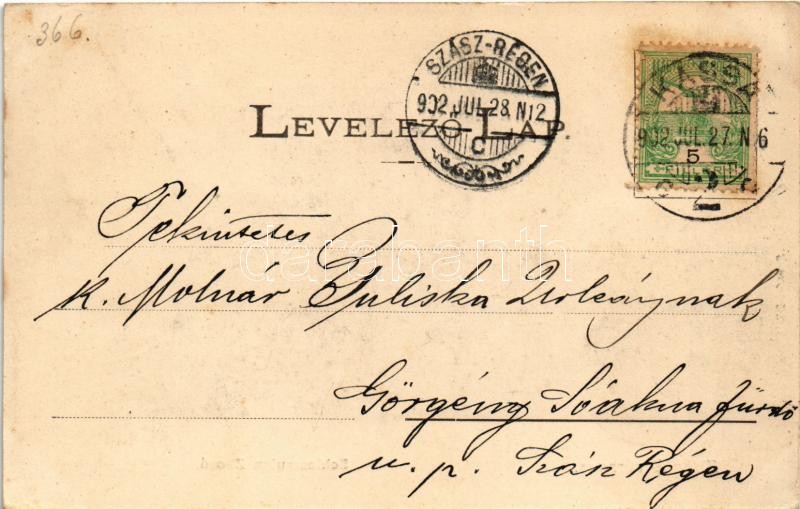 366.
SZÁSZ-RÉGEN
902 JUL. 28. N12
C
KASSA
902 JUL. 27. N 6
5
LEVELEZŐ-LAP.
Tekintetes
k. Molnár Juliska Urleánynak
Görgény Sóakna fürdő
u. p. Szász Régen
darabanth